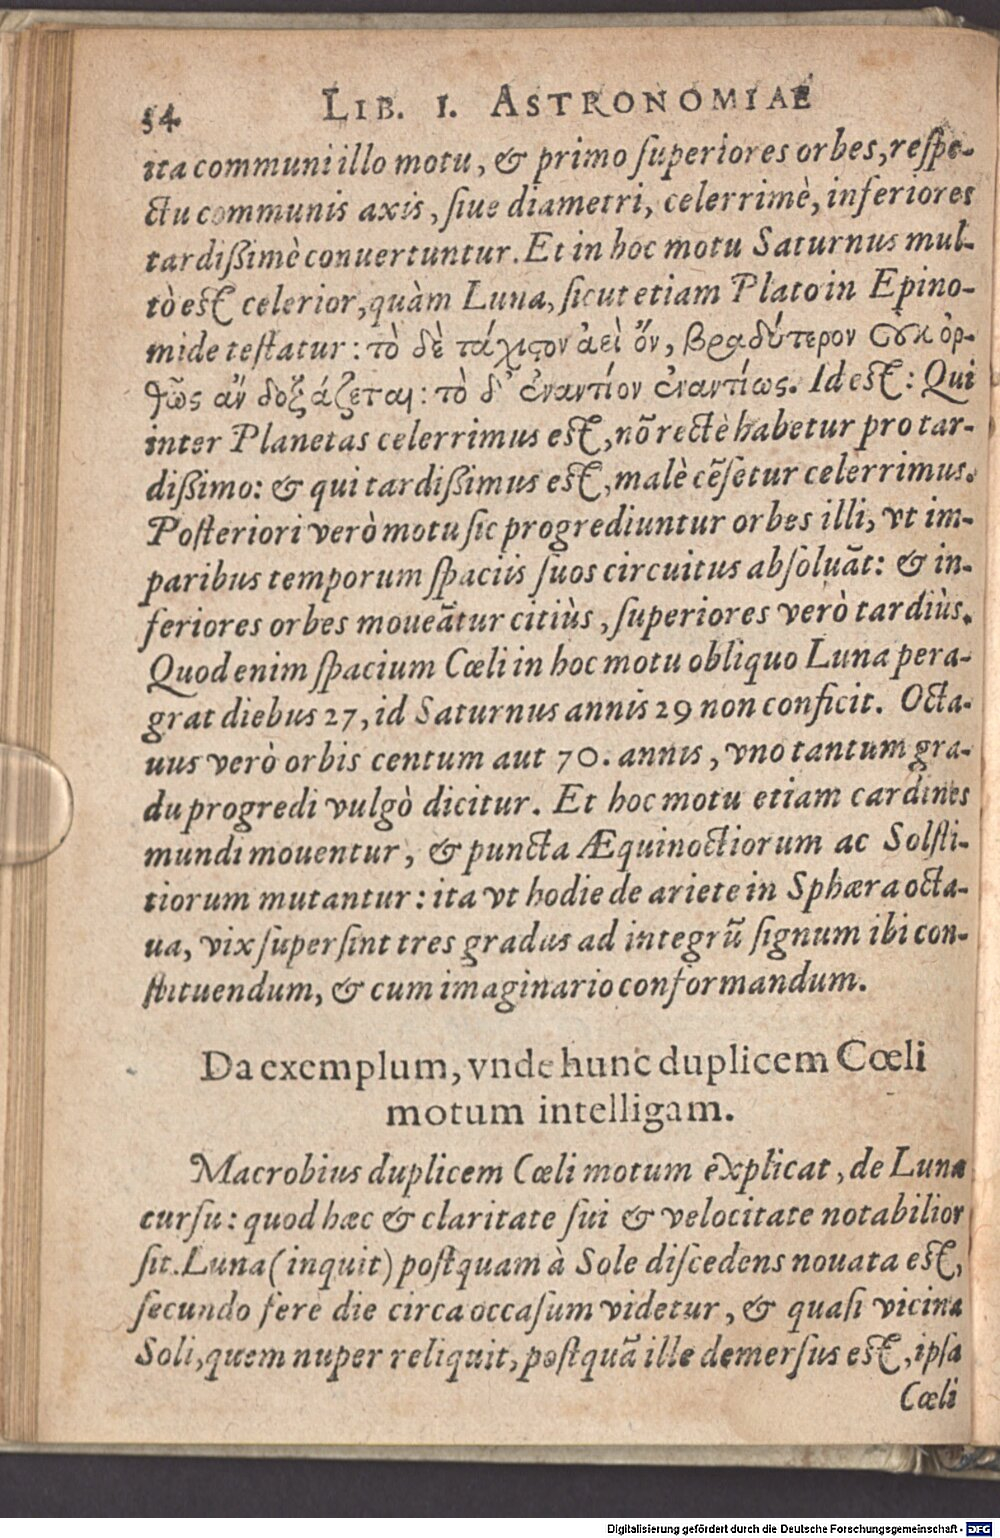 54 LIB. I. ASTRONOMIAE
ita communi illo motu, & primo ſuperiores orbes, reſpe-
ctu communis axis, ſiue diametri, celerrimè, inferiores
tardiſsimè conuertuntur. Et in hoc motu Saturnus mul-
tò est celerior, quàm Luna, ſicut etiam Plato in Epino-
mide teſtatur: τὸ δὲ τάχιϛον ἀεὶ ὄν, βραδύτερον οὐκ ὀρ-
θῶς ἂν δοξάζεται: τὸ δ' ἐναντίον ἐναντίως. Id est: Qui
inter Planetas celerrimus est, nō rectè habetur pro tar-
diſsimo: & qui tardiſsimus est, malè cēſetur celerrimus.
Poſteriori verò motu ſic progrediuntur orbes illi, vt im-
paribus temporum ſpaciis ſuos circuitus abſoluāt: & in-
feriores orbes moueātur citiùs, ſuperiores verò tardiùs.
Quod enim ſpacium Cœli in hoc motu obliquo Luna pera-
grat diebus 27, id Saturnus annis 29 non conficit. Octa-
uus verò orbis centum aut 70. annis, vno tantum gra-
du progredi vulgò dicitur. Et hoc motu etiam cardines
mundi mouentur, & puncta Æquinoctiorum ac Solſti-
tiorum mutantur: ita vt hodie de ariete in Sphæra octa-
ua, vix ſuperſint tres gradus ad integrū ſignum ibi con-
ſtituendum, & cum imaginario conformandum.
Da exemplum, vnde hunc duplicem Cœli
motum intelligam.
Macrobius duplicem Cœli motum explicat, de Luna
curſu: quod hæc & claritate ſui & velocitate notabilior
ſit. Luna (inquit) poſtquam à Sole diſcedens nouata est,
ſecundo fere die circa occaſum videtur, & quaſi vicina
Soli, quem nuper reliquit, poſtquā ille demerſus est, ipſa
Cœli
Digitalisierung gefördert durch die Deutsche Forschungsgemeinschaft - DFG